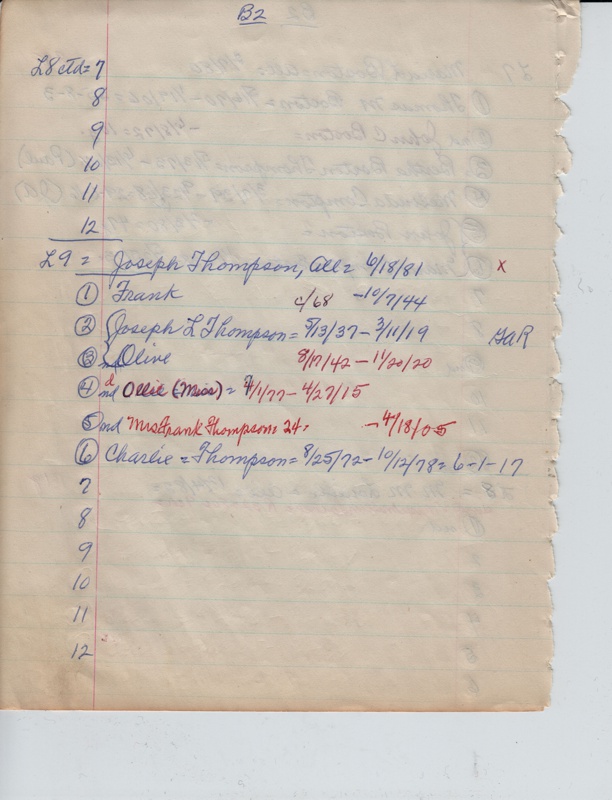 B2
L8 ctd = 7
8
9
10
11
12
L9 = Joseph Thompson, all = 6/18/81 x
① Frank c/68 - 10/7/44
② Joseph L Thompson = 5/13/37 - 3/11/19 GAR
③ md Olive 8/17/42 - 11/20/20
④ d md Ollie (Miss) = 4/1/77 - 4/27/15
⑤ md Mrs Frank Thompson = 24 = - 4/18/05
⑥ Charlie = Thompson = 8/25/72 - 10/12/78 = 6-1-17
7
8
9
10
11
12